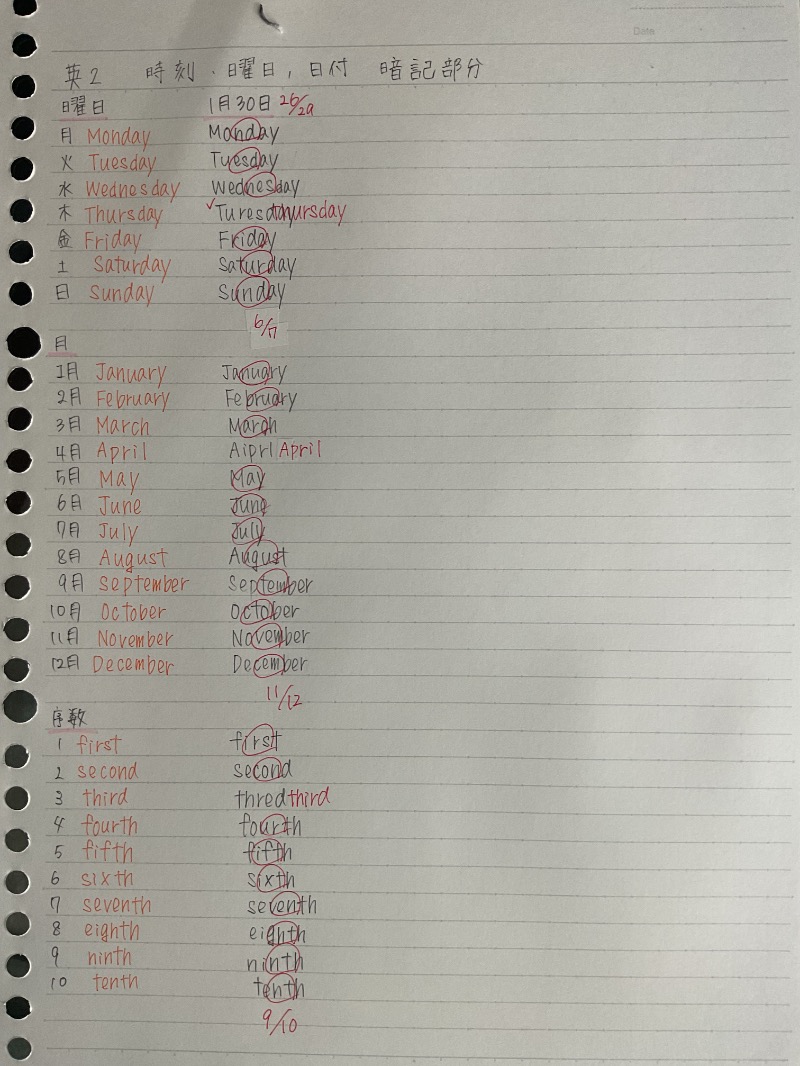 Date
英2 時刻、曜日,日付 暗記部分
曜日 1月30日 26/29
月 Monday Monday
火 Tuesday Tuesday
水 Wednesday Wednesday
木 Thursday ✓Turesday Thursday
金 Friday Friday
土 Saturday Saturday
日 Sunday Sunday
6/7
月
1月 January January
2月 February February
3月 March March
4月 April Aiprl April
5月 May May
6月 June June
7月 July July
8月 August August
9月 September September
10月 October October
11月 November November
12月 December December
11/12
序数
1 first first
2 second second
3 third thred third
4 fourth fourth
5 fifth fifth
6 sixth sixth
7 seventh seventh
8 eighth eighth
9 ninth ninth
10 tenth tenth
9/10